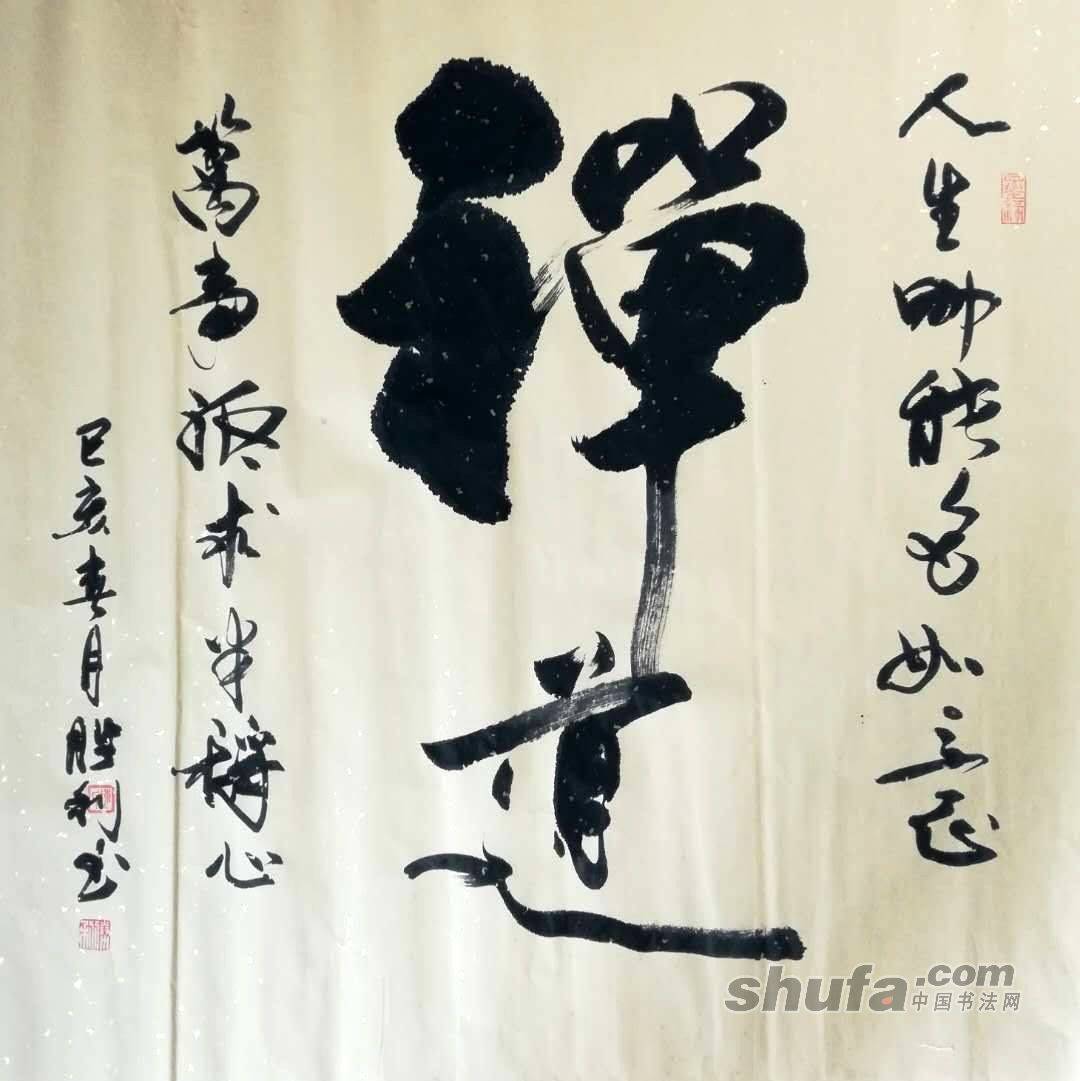 人生哪能多如意
禪道
萬事祇求半稱心
己亥春月勝利书
shufa.com
中国书法网